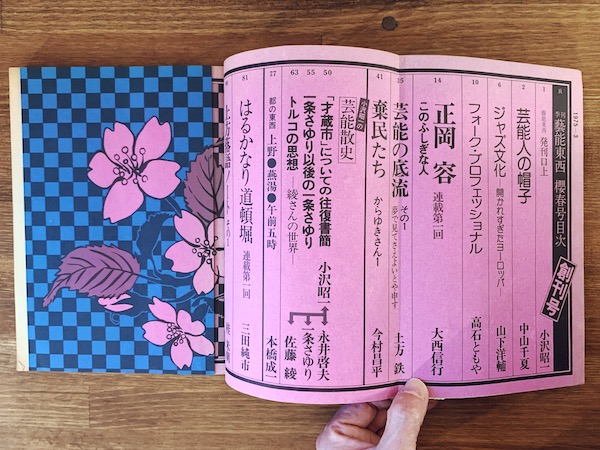 1975-3
季刊 藝能東西 櫻春号目次
創刊号
1 藝能東西 発刊口上 小沢昭一
2 芸能人の帽子 中山千夏
6 ジャズ文化 開かれすぎたヨーロッパ 山下洋輔
10 フォーク・プロフェッショナル 高石ともや
14 正岡容 このふしぎな人 連載第一回 大西信行
35 芸能の底流 その一 夢で見てさえよいとや申す 土方鉄
41 棄民たち からゆきさん 今村昌平
芸能散史
50 「才蔵市」についての往復書簡 小沢昭一 永井啓夫
55 一条さゆり以後の一条さゆり 一条さゆり
63 トルコの思想 綾さんの世界 佐藤綾
77 都の東西 上野●燕湯●午前五時 本橋成一
81 はるかなり道頓堀 連載第一回 三田純市